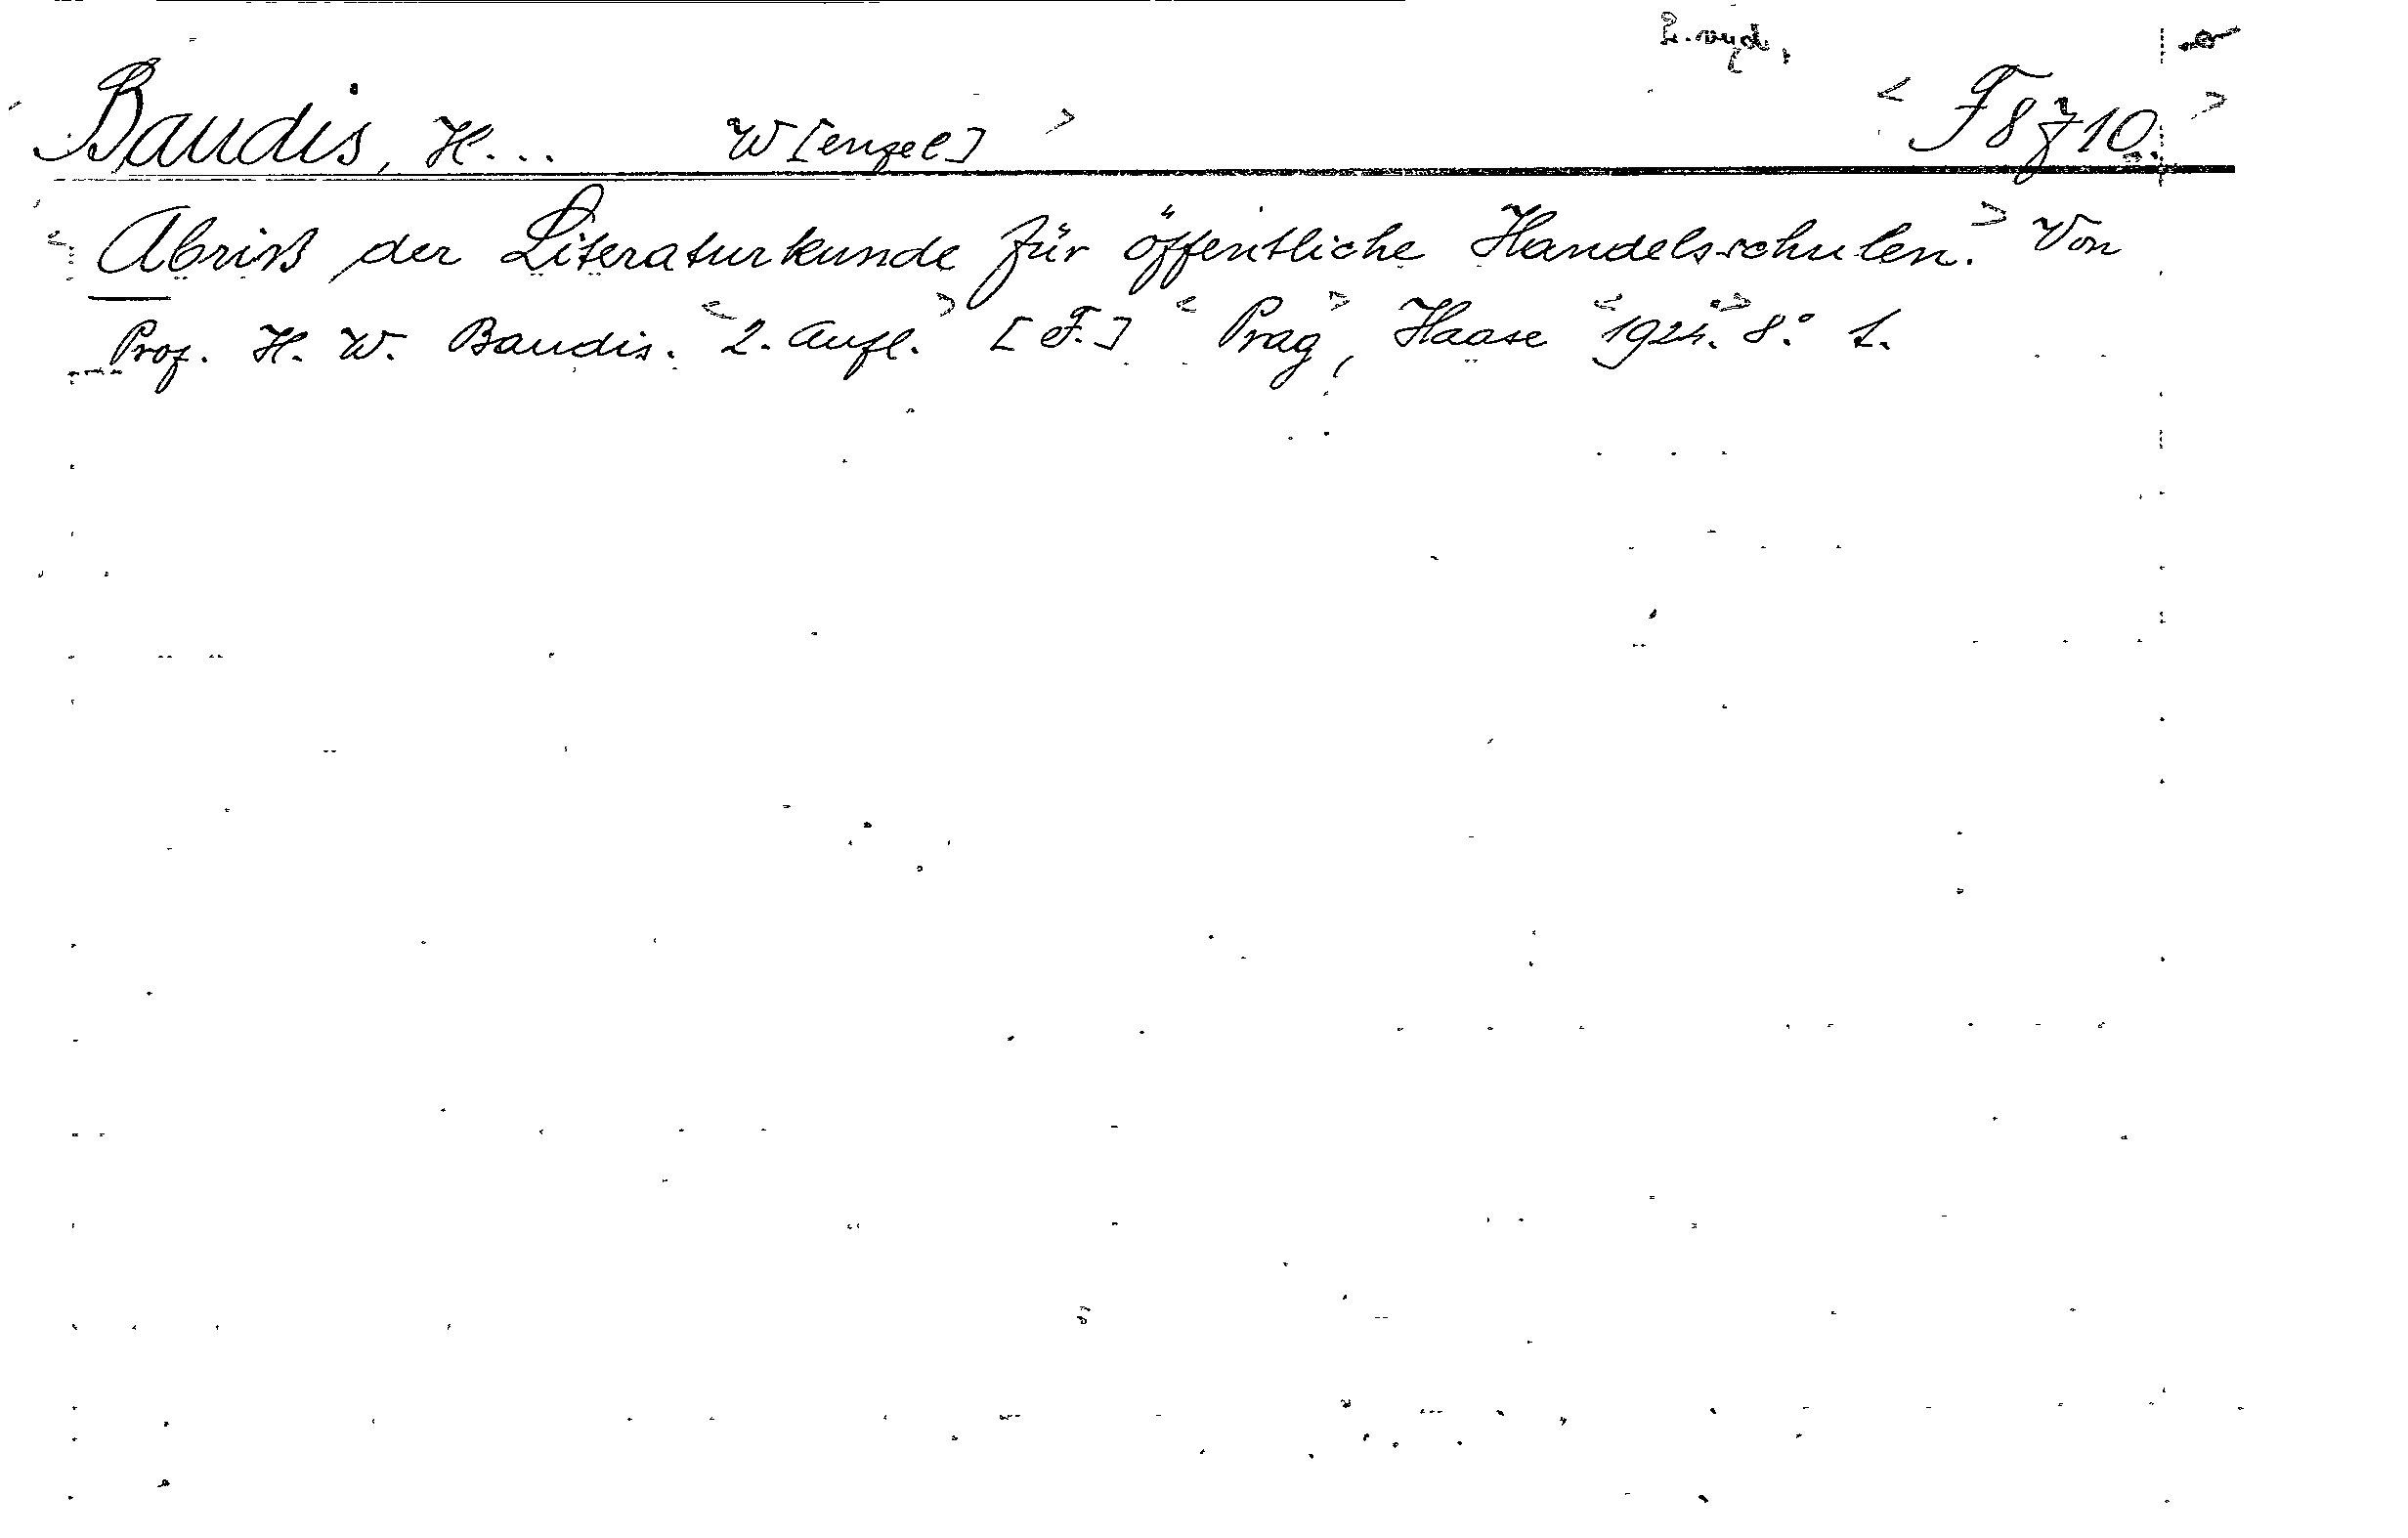 2. vyd.
Baudis, H... W[enzel] F 8 z 10.
Abriß der Literaturkunde für öffentliche Handelsschulen. Von
Prof. H. W. Baudis. 2. Aufl. [F.] Prag, Haase 1924. 8.° 1.